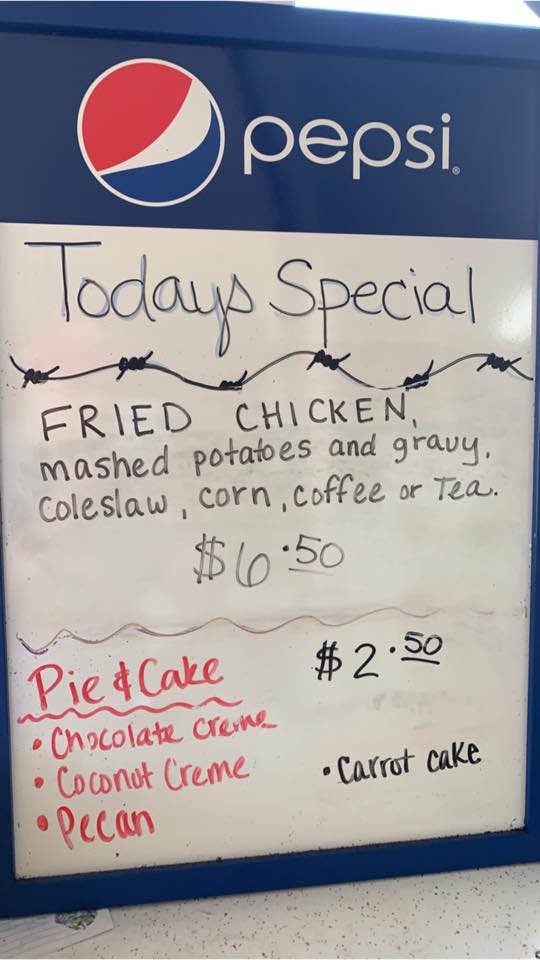 pepsi
Todays Special
FRIED CHICKEN,
mashed potatoes and gravy,
Coleslaw, corn, coffee or Tea.
$6.50
Pie & Cake $2.50
• Chocolate creme
• Coconut Creme • Carrot cake
• Pecan